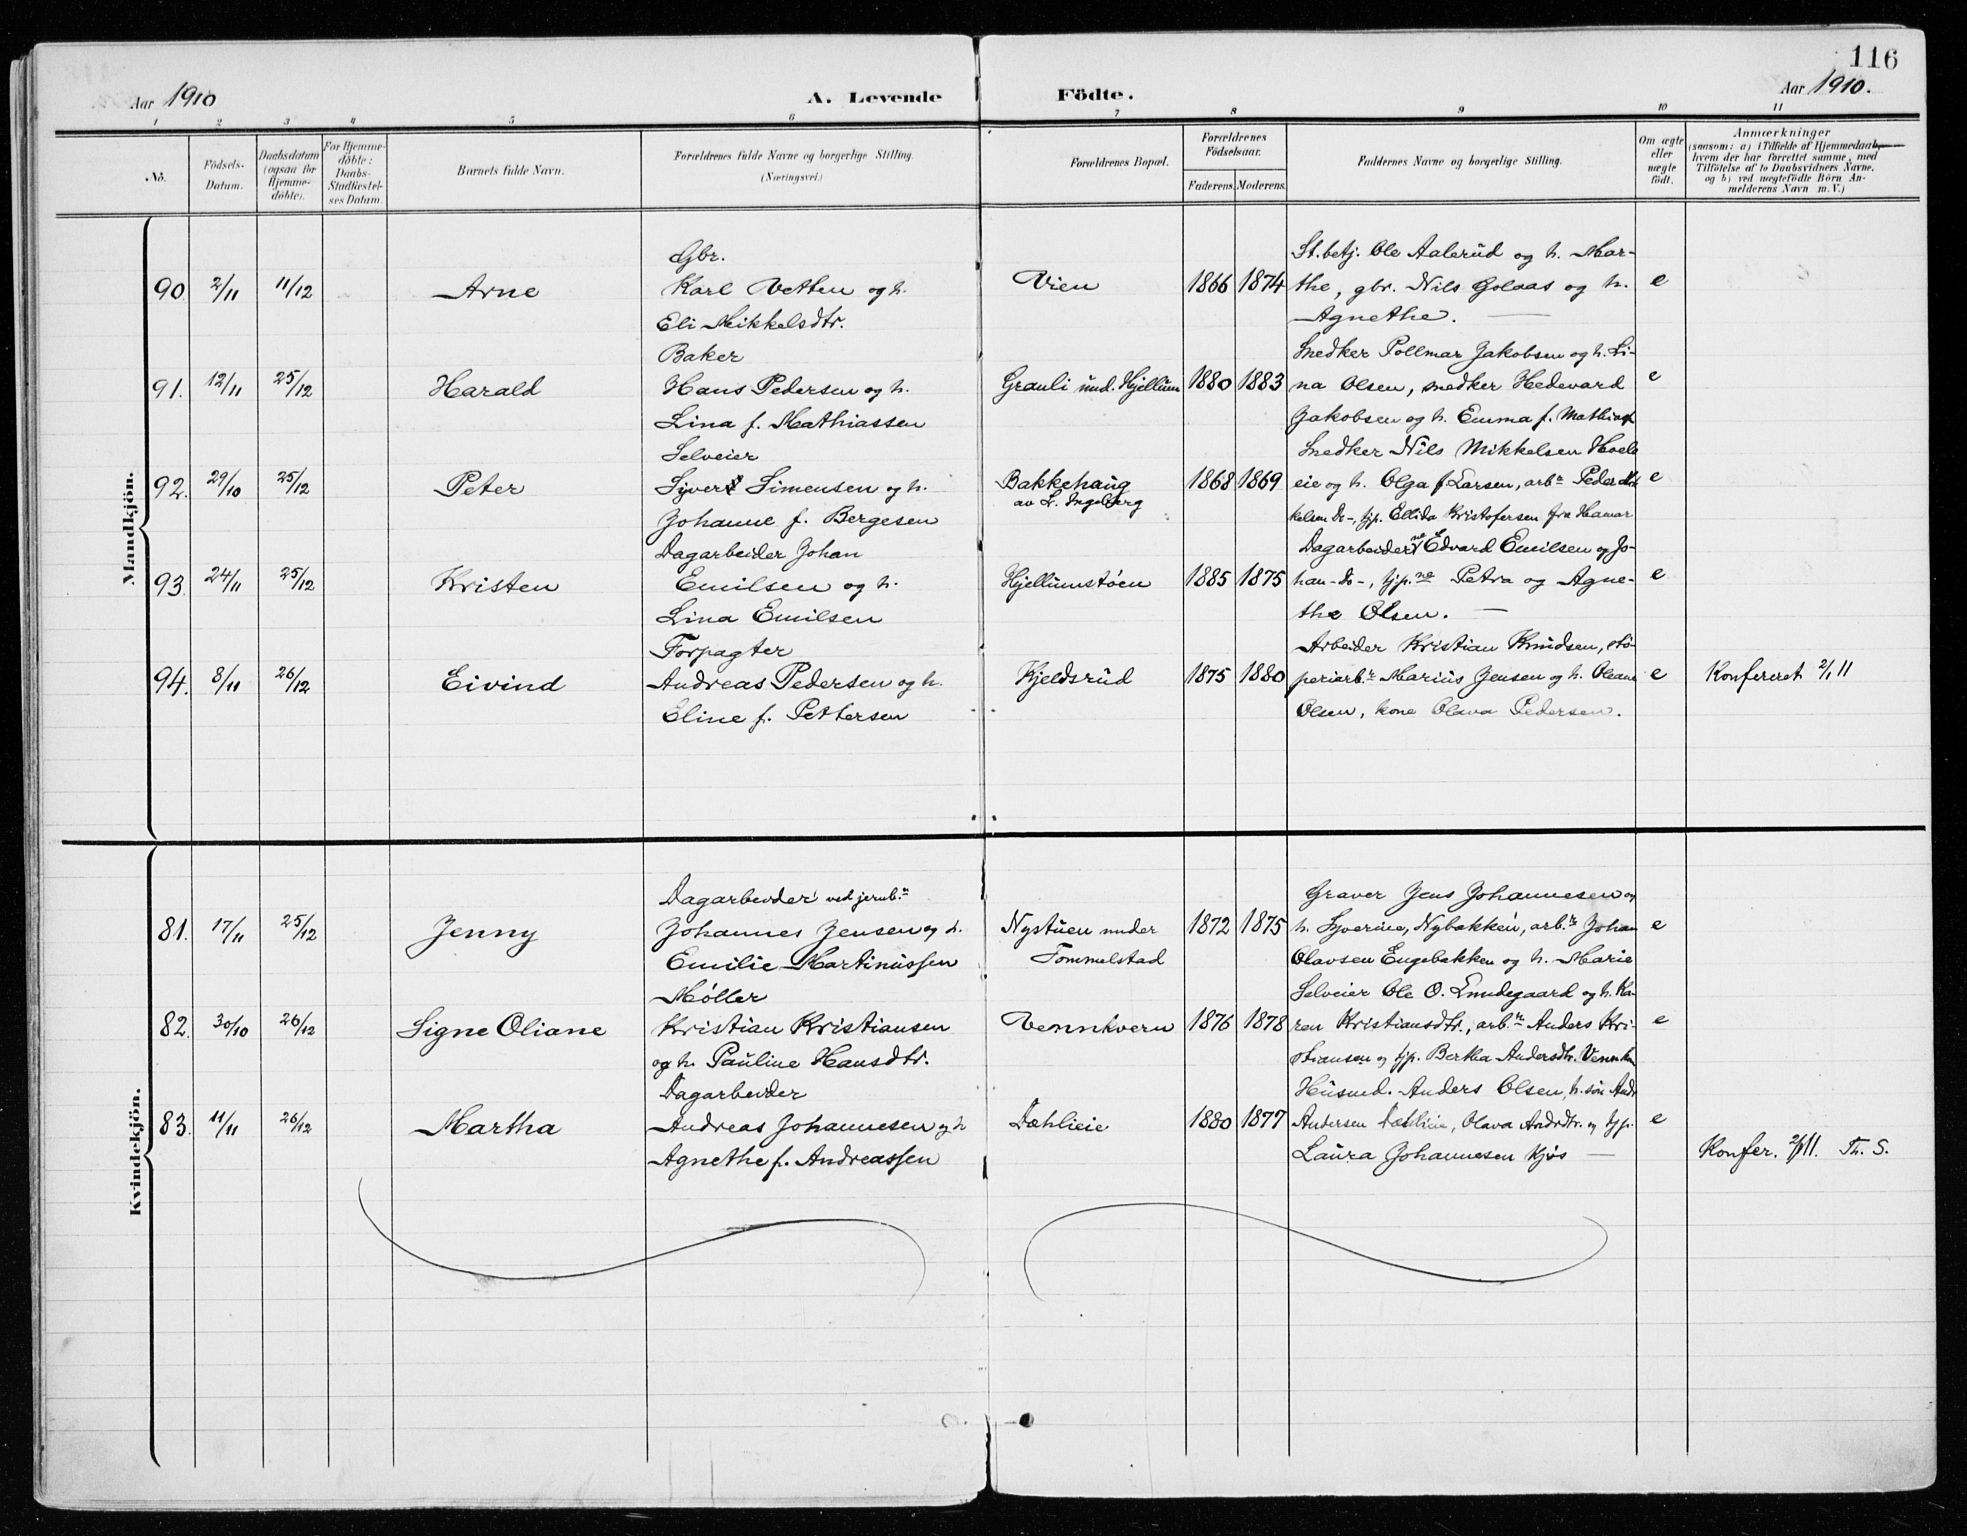 116
Aar 1910
A. Levende
Födte.
Aar 1910.
1 2 3 4 5 6 7 8 9 10 11
No.
Födsels-
Datum.
Daabsdatum
(ogsaa for
Hjemme-
döbte).
For Hjemme-
döbte:
Daabs-
Stadfæstel-
ses Datum.
Barnets fulde Navn.
Forældrenes fulde Navne og borgerlige Stilling.
(Næringsvei.)
Forældrenes Bopæl.
Forældrenes
Födselsaar.
Faderens. Moderens.
Faddernes Navne og borgerlige Stilling.
Om ægte
eller
uægte
födt.
Anmærkninger
(saasom: a) i Tilfælde af Hjemmedaab,
hvem der har forrettet samme, med
Tilföielse af to Daabsvidners Navne,
og b) ved uægtefödte Börn An-
melderens Navn m. V.)
Mandkjön.
90. 2/11 11/12 Arne
Gbr.
Karl Vetten og h.
Eli Mikkelsdtr.
Vien 1866 1874
St.betj. Ole Aalerud og h. Mar-
the, gbr. Nils Golaas og h.
Agnethe. —
e
91. 12/11 25/12 Harald
Baker
Hans Pedersen og h.
Lina f. Mathiassen
Grauli und. Hjellum 1880 1883
Snedker Pollmar Jakobsen og h. Li-
na Olsen, snedker Hedevard
Jakobsen og h. Emma f. Mathias
e
92. 29/10 25/12 Peter
Selveier
Syver Simensen og h.
Johanne f. Bergesen
Bakkehaug
av L. Ingeberg
1868 1869
Snedker Nils Mikkelsen Hvels
eie og h. Olga f. Larsen, arb. Peder Mik
kelsen do-, tjp. Ellida Kristofersen fra Hamar
e
93. 24/11 25/12 Kristen
Dagarbeider Johan
Emilsen og h.
Lina Emilsen
Hjellumstøen 1885 1875
Dagarbeiderne Edvard Emilsen og Jo-
han -do-, tjp.ne Petra og Agne-
the Olsen. —
e
94. 8/11 26/12 Eivind
Forpagter
Andreas Pedersen og h.
Eline f. Pettersen
Kjeldsrud 1875 1880
Arbeider Kristian Knudsen, stø-
periarb.r Marius Jensen og h. Oleane
Olsen, kone Olava Pedersen.
e
Konfereret 2/1 11
Kvindekjön.
81. 17/11 25/12 Jenny
Dagarbeider ved jernb.n
Johannes Jensen og h.
Emilie Martinussen
Nystuen under
Tommelstad
1872 1875
Graver Jens Johannesen og
h. Syverine, Nybakken, arb.r Johan
Olavsen Engebakken og h. Marie
e
82. 30/10 26/12 Signe Oliane
Møller
Kristian Kristiansen
og h. Pauline Hansdtr.
Vennkvern 1876 1878
Selveier Ole O. Lundegaard og h. Ka-
ren Kristiansdtr., arb.r Anders Kri-
stiansen og tjp. Bertha Andersdtr. Vennkvn
e
83. 11/11 26/12 Martha
Dagarbeider
Andreas Johannesen og h
Agnethe f. Andreassen
Dæhlieie 1880 1877
Husmd. Anders Olsen, h. søn Andr
Andersen Dæhlieie, Olava Andrdtr. og tjp.
Laura Johannesen Kjos —
e
Konfer. 2/1 11. Th. S.